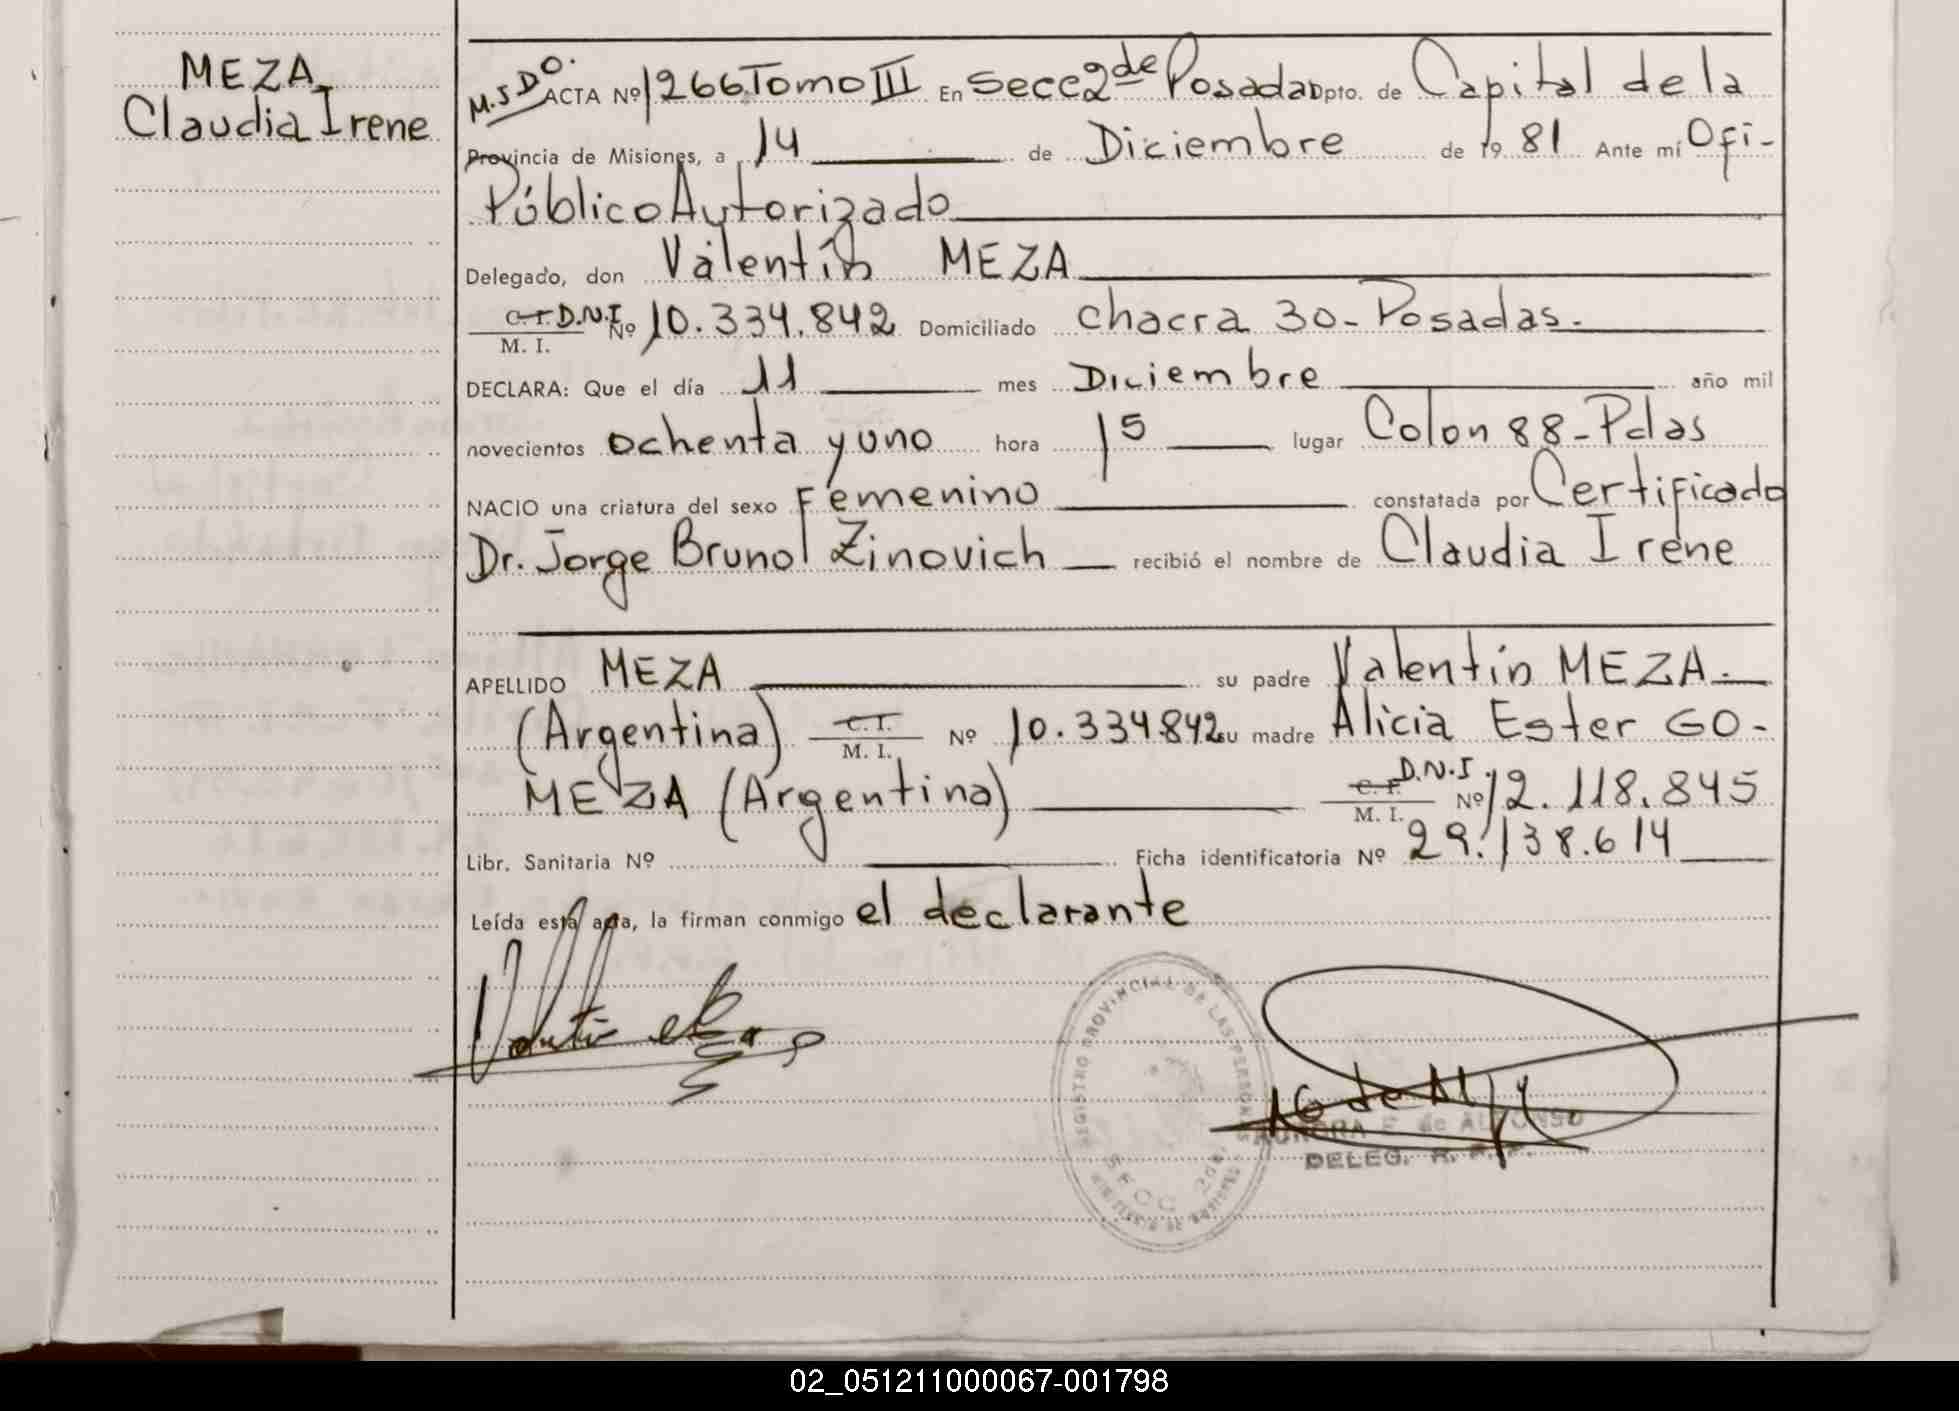 MEZA
Claudia Irene
M.S.D.O. ACTA Nº 1266 Tomo III En Secc 2de Posadas Dpto. de Capital de la
Provincia de Misiones, a 14 de Diciembre de 1981 Ante mí Ofi-
Público Autorizado
Delegado, don Valentín MEZA
C.I. D.N.I Nº 10.334.842 Domiciliado chacra 30 - Posadas.
M. I.
DECLARA: Que el día 11 mes Diciembre año mil
novecientos ochenta y uno hora 15 lugar Colon 88 - Pdas
NACIO una criatura del sexo Femenino constatada por Certificado
Dr. Jorge Bruno Zinovich recibió el nombre de Claudia Irene
APELLIDO MEZA su padre Valentín MEZA.
(Argentina) C.I. Nº 10.334.842 su madre Alicia Ester GO-
M. I.
MEZA (Argentina) C.I. D.N.I. Nº 12.118.845
M. I.
Libr. Sanitaria Nº Ficha identificatoria Nº 29.138.614
Leída esta acta, la firman conmigo el declarante
REGISTRO PROVINCIAL DE LAS PERSONAS
SECC. 2da.
AURORA F. de ALFONSO
DELEG. R. P. P.
02_051211000067-001798